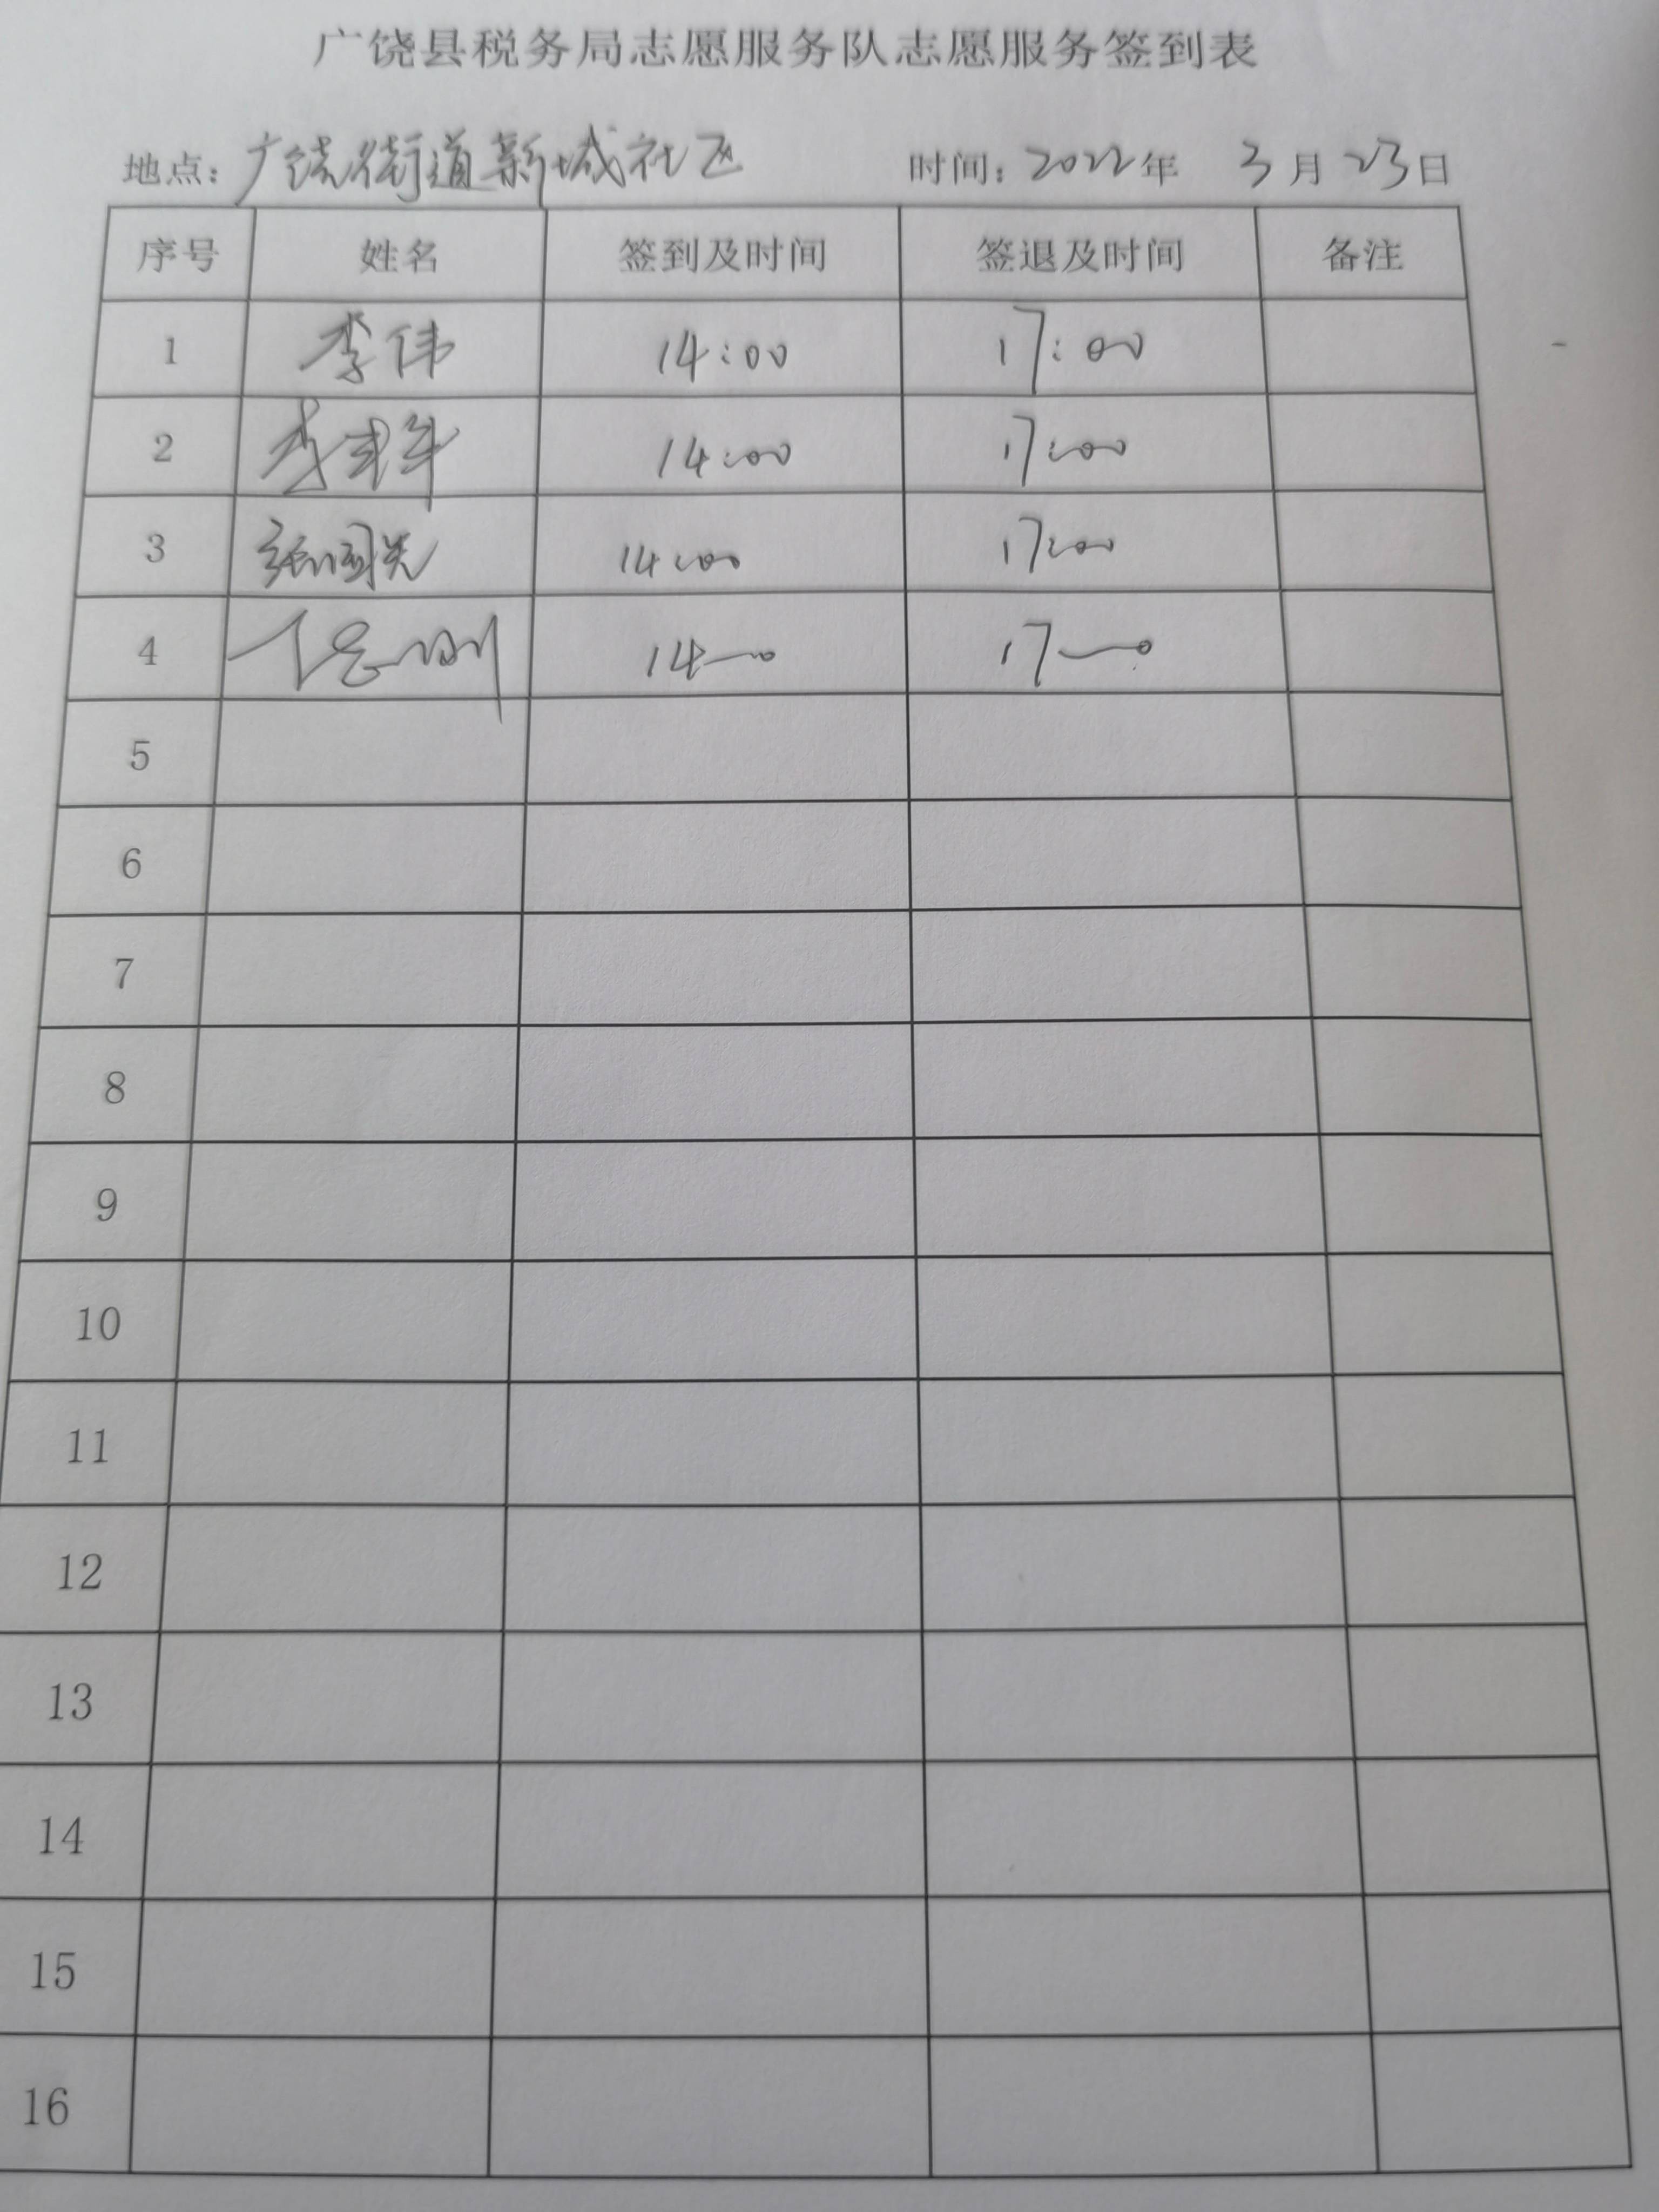 广饶县税务局志愿服务队志愿服务签到表
地点：广饶街道新城社区 时间：2022年 3月23日
序号 姓名 签到及时间 签退及时间 备注
1 李伟 14:00 17:00
2 李 14:00 17:00
3 张国 14:00 17:00
4 14:00 17:00
5
6
7
8
9
10
11
12
13
14
15
16